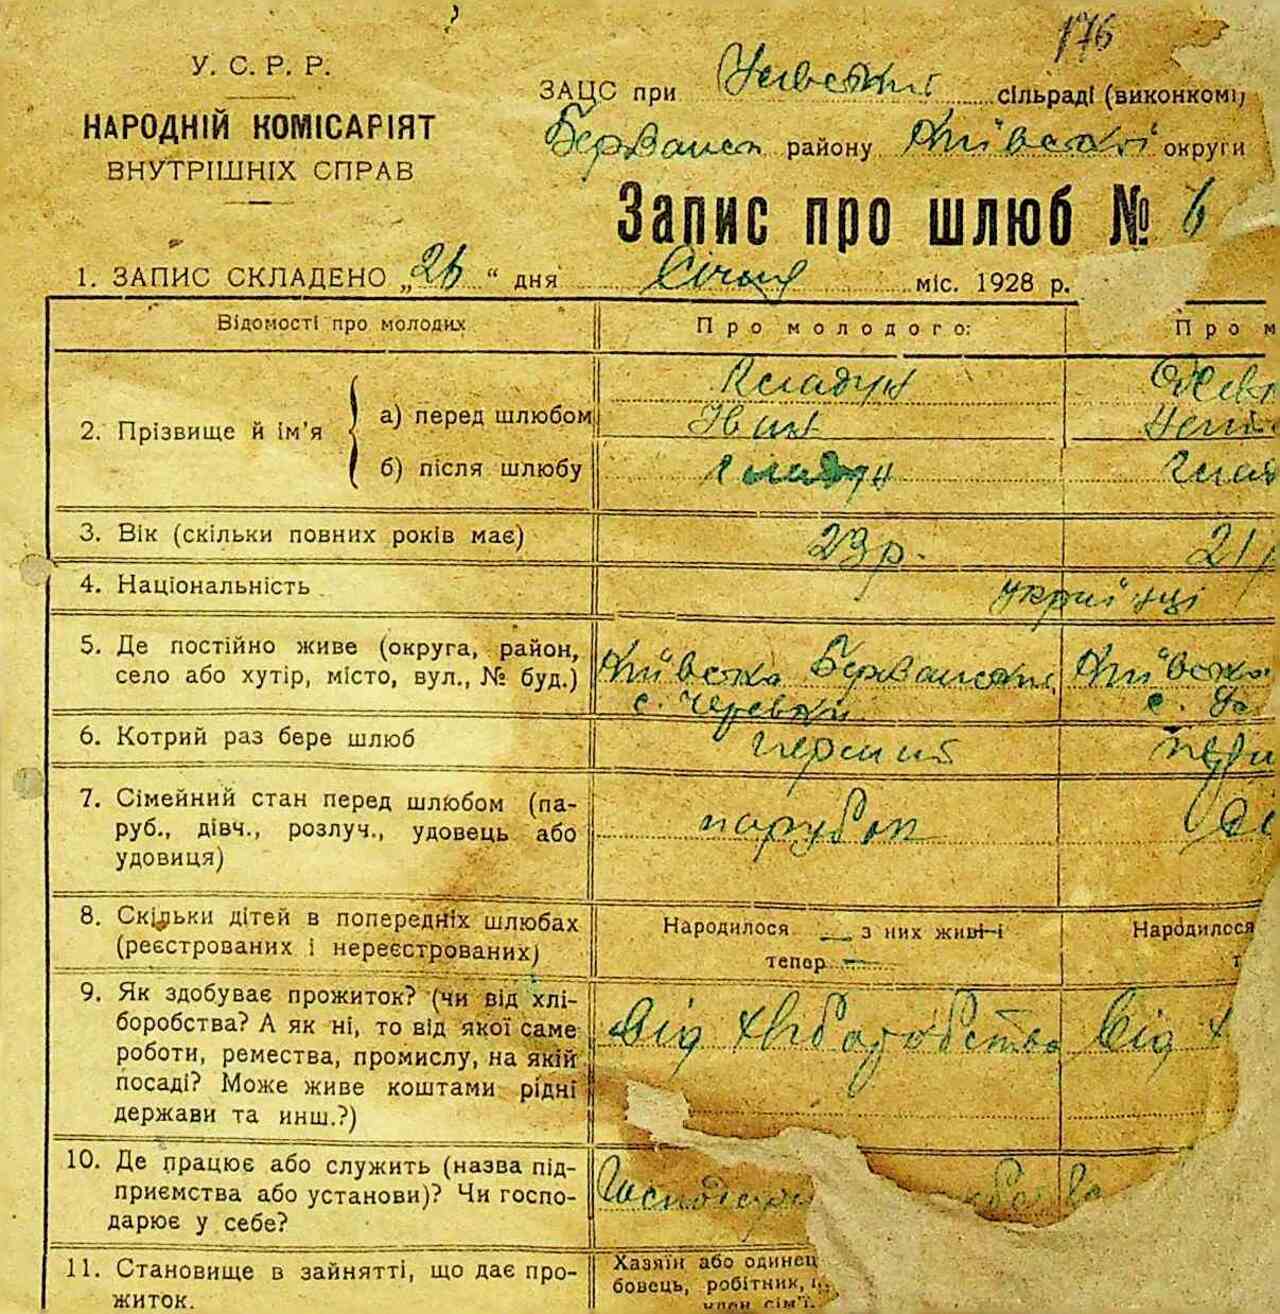 176
У. С. Р. Р.
НАРОДНІЙ КОМІСАРІЯТ
ВНУТРІШНІХ СПРАВ
ЗАЦС при сільраді (виконкомі)
району Київської округи
Запис про шлюб № 6
1. ЗАПИС СКЛАДЕНО „26“ дня Січня міс. 1928 р.
Відомості про молодих Про молодого: Про м
2. Прізвище й ім'я
а) перед шлюбом
Іван
б) після шлюбу
3. Вік (скільки повних років має) 23 р. 21
4. Національність українці
5. Де постійно живе (округа, район,
село або хутір, місто, вул., № буд.) Київська Київська
с. Черевки с.
6. Котрий раз бере шлюб перший
7. Сімейний стан перед шлюбом (па-
руб., дівч., розлуч., удовець або парубок
удовиця)
8. Скільки дітей в попередніх шлюбах Народилося — з них живі Народилося
(реєстрованих і нереєстрованих) тепер —
9. Як здобуває прожиток? (чи від хлі-
боробства? А як ні, то від якої саме від хліборобства від х
роботи, ремества, промислу, на якій
посаді? Може живе коштами рідні
держави та инш.?)
10. Де працює або служить (назва під-
приємства або установи)? Чи госпо-
дарює у себе?
11. Становище в зайнятті, що дає про- Хазяїн або одинец
житок. бовець, робітник,
член сім'ї.